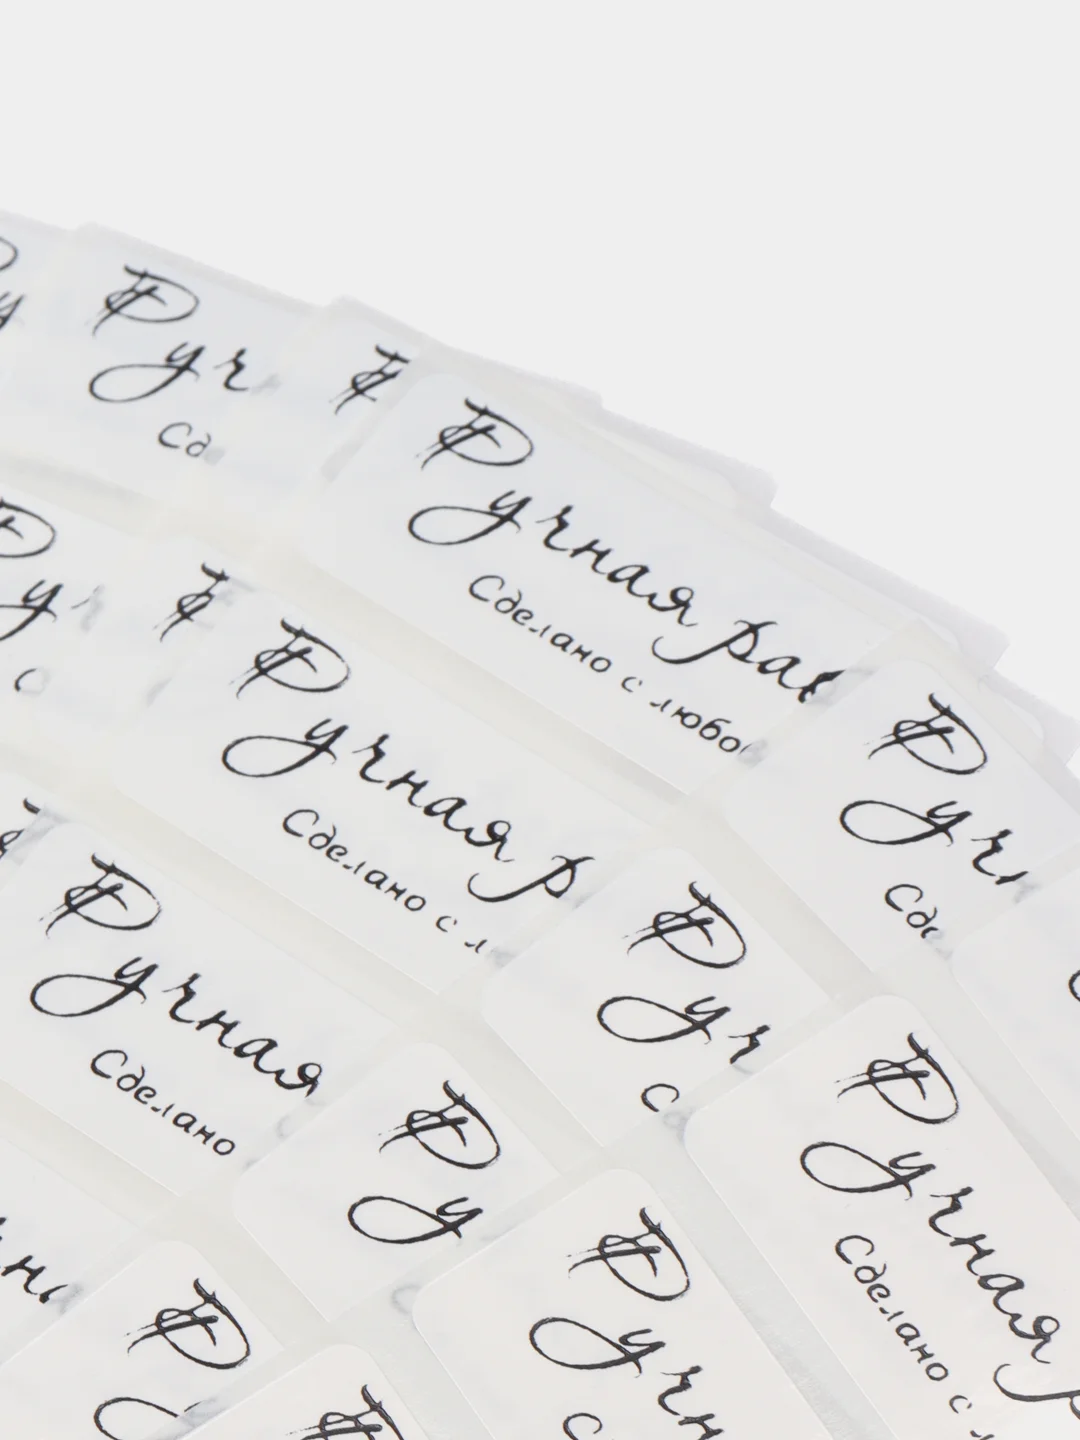 Руч
Сд
Ручная раб
Сделано с любо
Ру
Ручная р
Сделано с л
Руч
Сде
Ручная
Сделано
Руч
С
Ру
Ручная р
Сделано с л
Ручн
С
Р